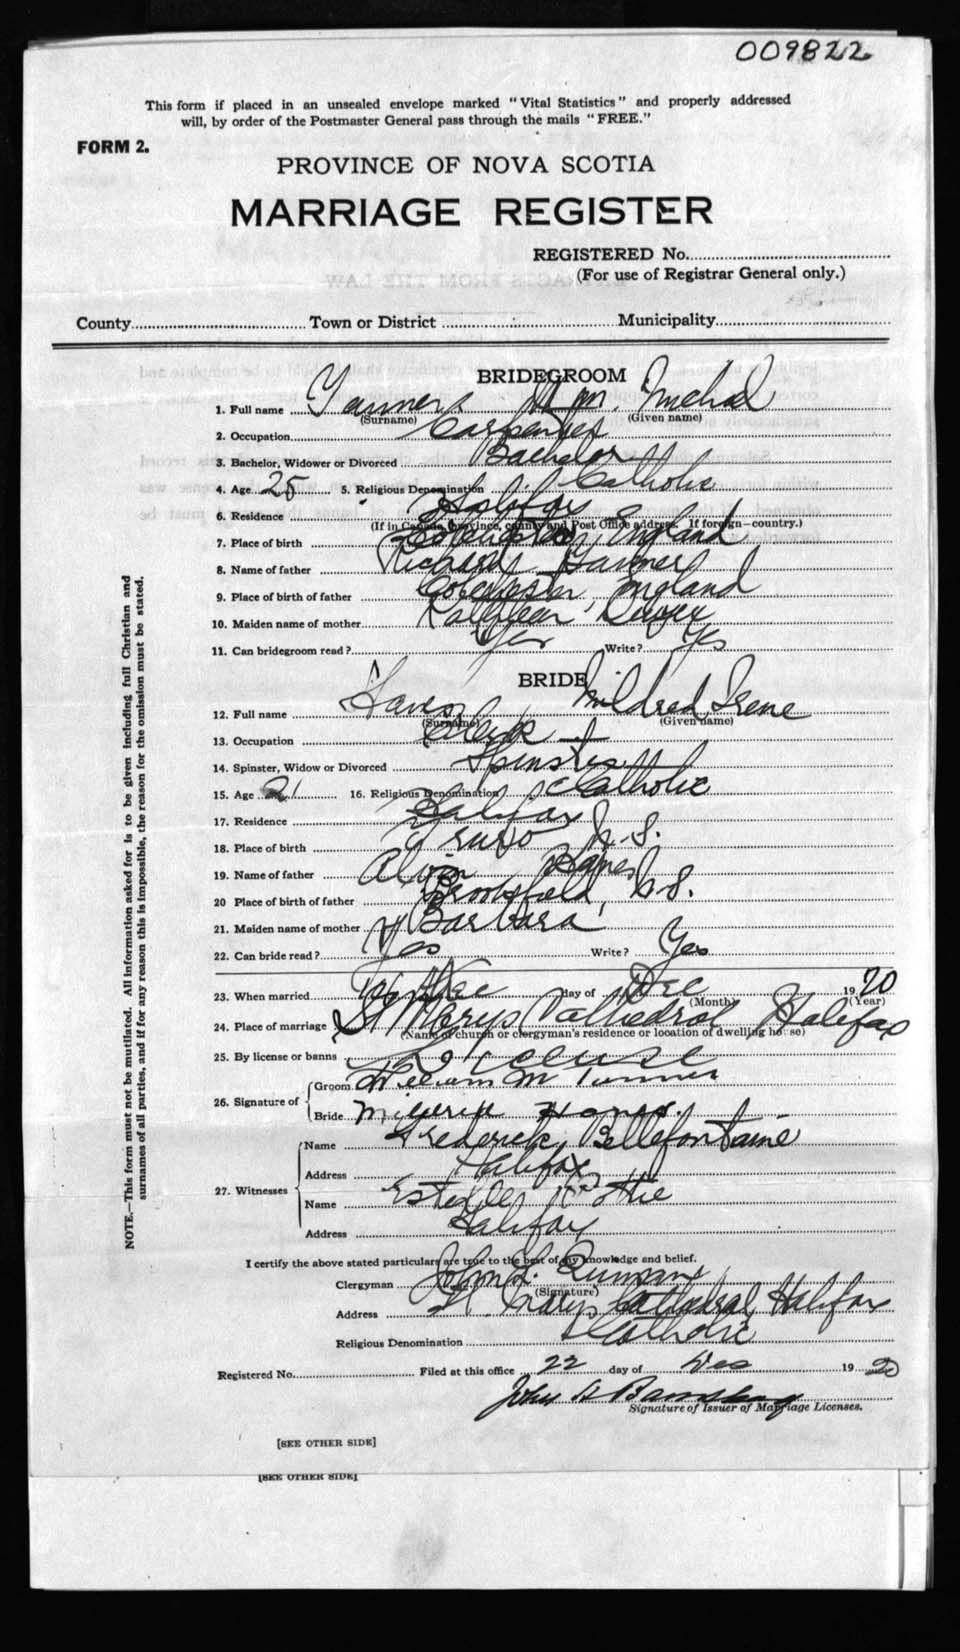 009822
This form if placed in an unsealed envelope marked "Vital Statistics" and properly addressed
will, by order of the Postmaster General pass through the mails "FREE."
FORM 2.
PROVINCE OF NOVA SCOTIA
MARRIAGE REGISTER
REGISTERED No.
(For use of Registrar General only.)
County Town or District Municipality
BRIDEGROOM
1. Full name Wm. Michael
(Surname) (Given name)
2. Occupation Carpenter
3. Bachelor, Widower or Divorced Bachelor
4. Age 25 5. Religious Denomination Catholic
6. Residence Halifax
(If in Canada, province, county and Post Office address. If foreign—country.)
7. Place of birth Colchester, England
8. Name of father Richard
9. Place of birth of father Colchester, England
10. Maiden name of mother Kathleen
11. Can bridegroom read? Yes Write? Yes
BRIDE
12. Full name Mildred Irene
(Surname) (Given name)
13. Occupation Clerk
14. Spinster, Widow or Divorced Spinster
15. Age 21 16. Religious Denomination Catholic
17. Residence Halifax
18. Place of birth Truro N.S.
19. Name of father
20 Place of birth of father Brookfield, N.S.
21. Maiden name of mother Barbara
22. Can bride read? Yes Write? Yes
23. When married day of Dec 1920
(Month) (Year)
24. Place of marriage St Marys Cathedral Halifax
(Name of church or clergyman's residence or location of dwelling house)
25. By license or banns License
26. Signature of
Groom William M
Bride
27. Witnesses
Name Frederick Bellefontaine
Address Halifax
Name
Address Halifax
I certify the above stated particulars are true to the best of my knowledge and belief.
Clergyman John
(Signature)
Address St Marys Cathedral, Halifax
Religious Denomination Catholic
Registered No. Filed at this office 22 day of Dec 1920
John
Signature of Issuer of Marriage Licenses.
[SEE OTHER SIDE]
[SEE OTHER SIDE]
NOTE.—This form must not be mutilated. All information asked for is to be given including full Christian and
surnames of all parties, and if for any reason this is impossible, the reason for the omission must be stated.